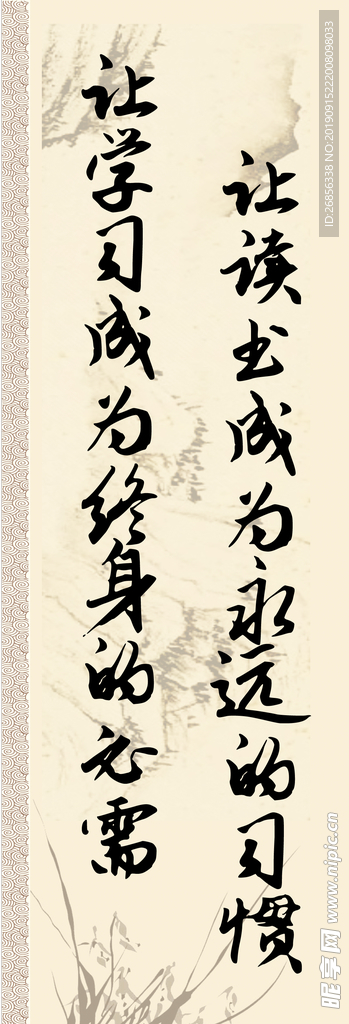 让读书成为永远的习惯
让学习成为终身的必需
ID:26856338 NO:20190915222008098033
昵享网 www.nipic.cn